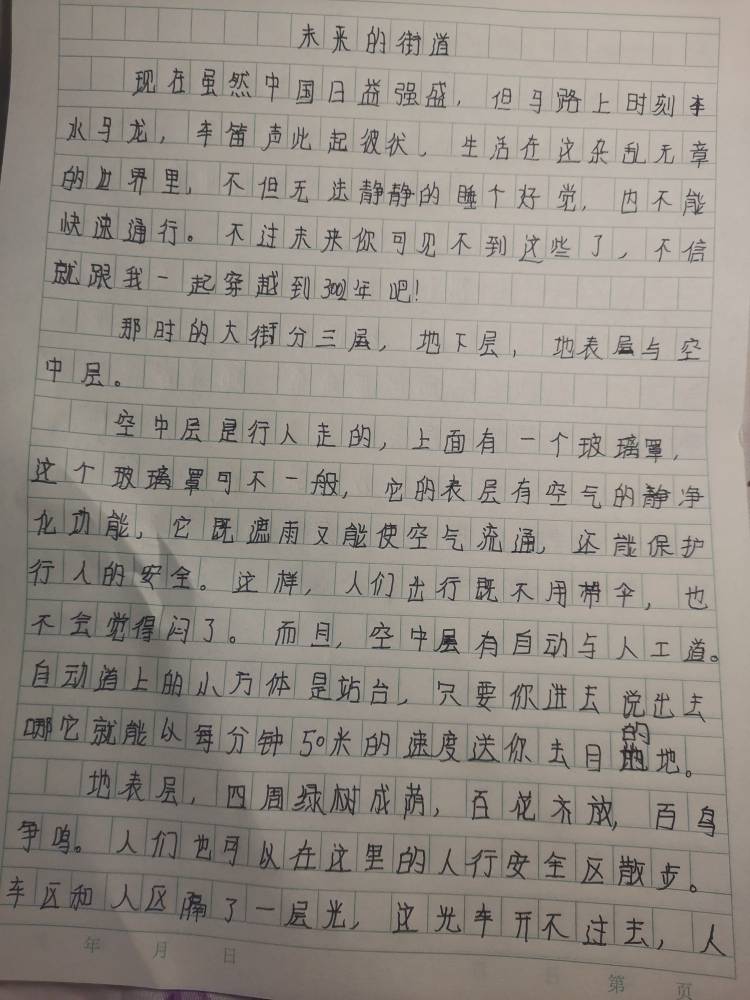 未来的街道
现在虽然中国日益强盛，但马路上时刻车
水马龙，车笛声此起彼伏。生活在这杂乱无章
的世界里，不但无法静静的睡个好觉，也不能
快速通行。不过未来你可见不到这些了，不信
就跟我一起穿越到3002年吧！
那时的大街分三层，地下层，地表层与空
中层。
空中层是行人走的，上面有一个玻璃罩，
这个玻璃罩可不一般，它的表层有空气的静净
化功能，它既遮雨又能使空气流通，还能保护
行人的安全。这样，人们出行既不用带伞，也
不会觉得闷了。而且，空中层有自动与人工道。
自动道上的小方体是站台，只要你进去说出去
哪它就能以每分钟50米的速度送你去目的地。
地表层，四周绿树成荫，百花齐放，百鸟
争鸣。人们也可以在这里的人行安全区散步。
车区和人区隔了一层光，这光车开不过去，人
年 月 日
第 页